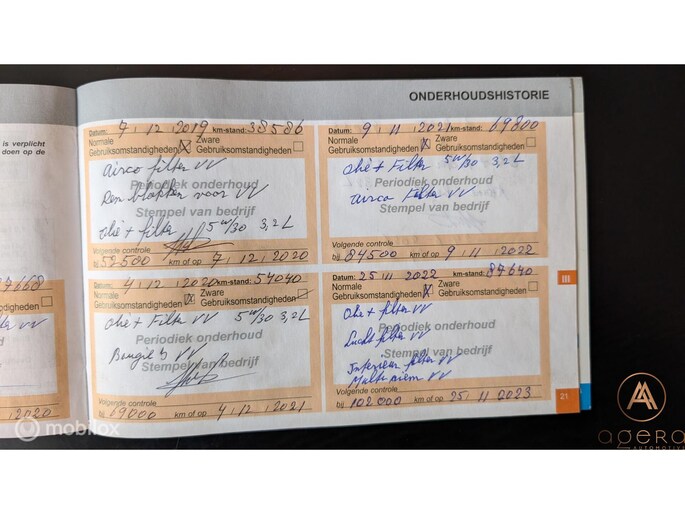 ONDERHOUDSHISTORIE
is verplicht
doen op de
Datum: 7.12.2019 km-stand: 38586
Normale Gebruiksomstandigheden X Zware Gebruiksomstandigheden
airco filter VV
Periodiek onderhoud
Rem blokken voor VV
Stempel van bedrijf
Olie + filter 5W/30 3,2L
Volgende controle
bij 53500 km of op 7.12.2020
Datum: 9.11.2021 km-stand: 69800
Normale Gebruiksomstandigheden X Zware Gebruiksomstandigheden
olie + Filter 5W/30 3,2L
Periodiek onderhoud
airco Filter VV
Stempel van bedrijf
Volgende controle
bij 84500 km of op 9.11.2022
Datum: 4.12.2020 km-stand: 54040
Normale Gebruiksomstandigheden X Zware Gebruiksomstandigheden
Olie + Filter VV 5W/30 3,2L
Periodiek onderhoud
Bougie's VV
Stempel van bedrijf
Volgende controle
bij 69000 km of op 4.12.2021
Datum: 25.11.2022 km-stand: 87640
Normale Gebruiksomstandigheden X Zware Gebruiksomstandigheden
Olie + filter VV
Periodiek onderhoud
Lucht filter VV
Stempel van bedrijf
Interieur filter VV
Multi riem VV
Volgende controle
bij 102.000 km of op 25.11.2023
2020
21
mobilox
agera
AUTOMOTIVE